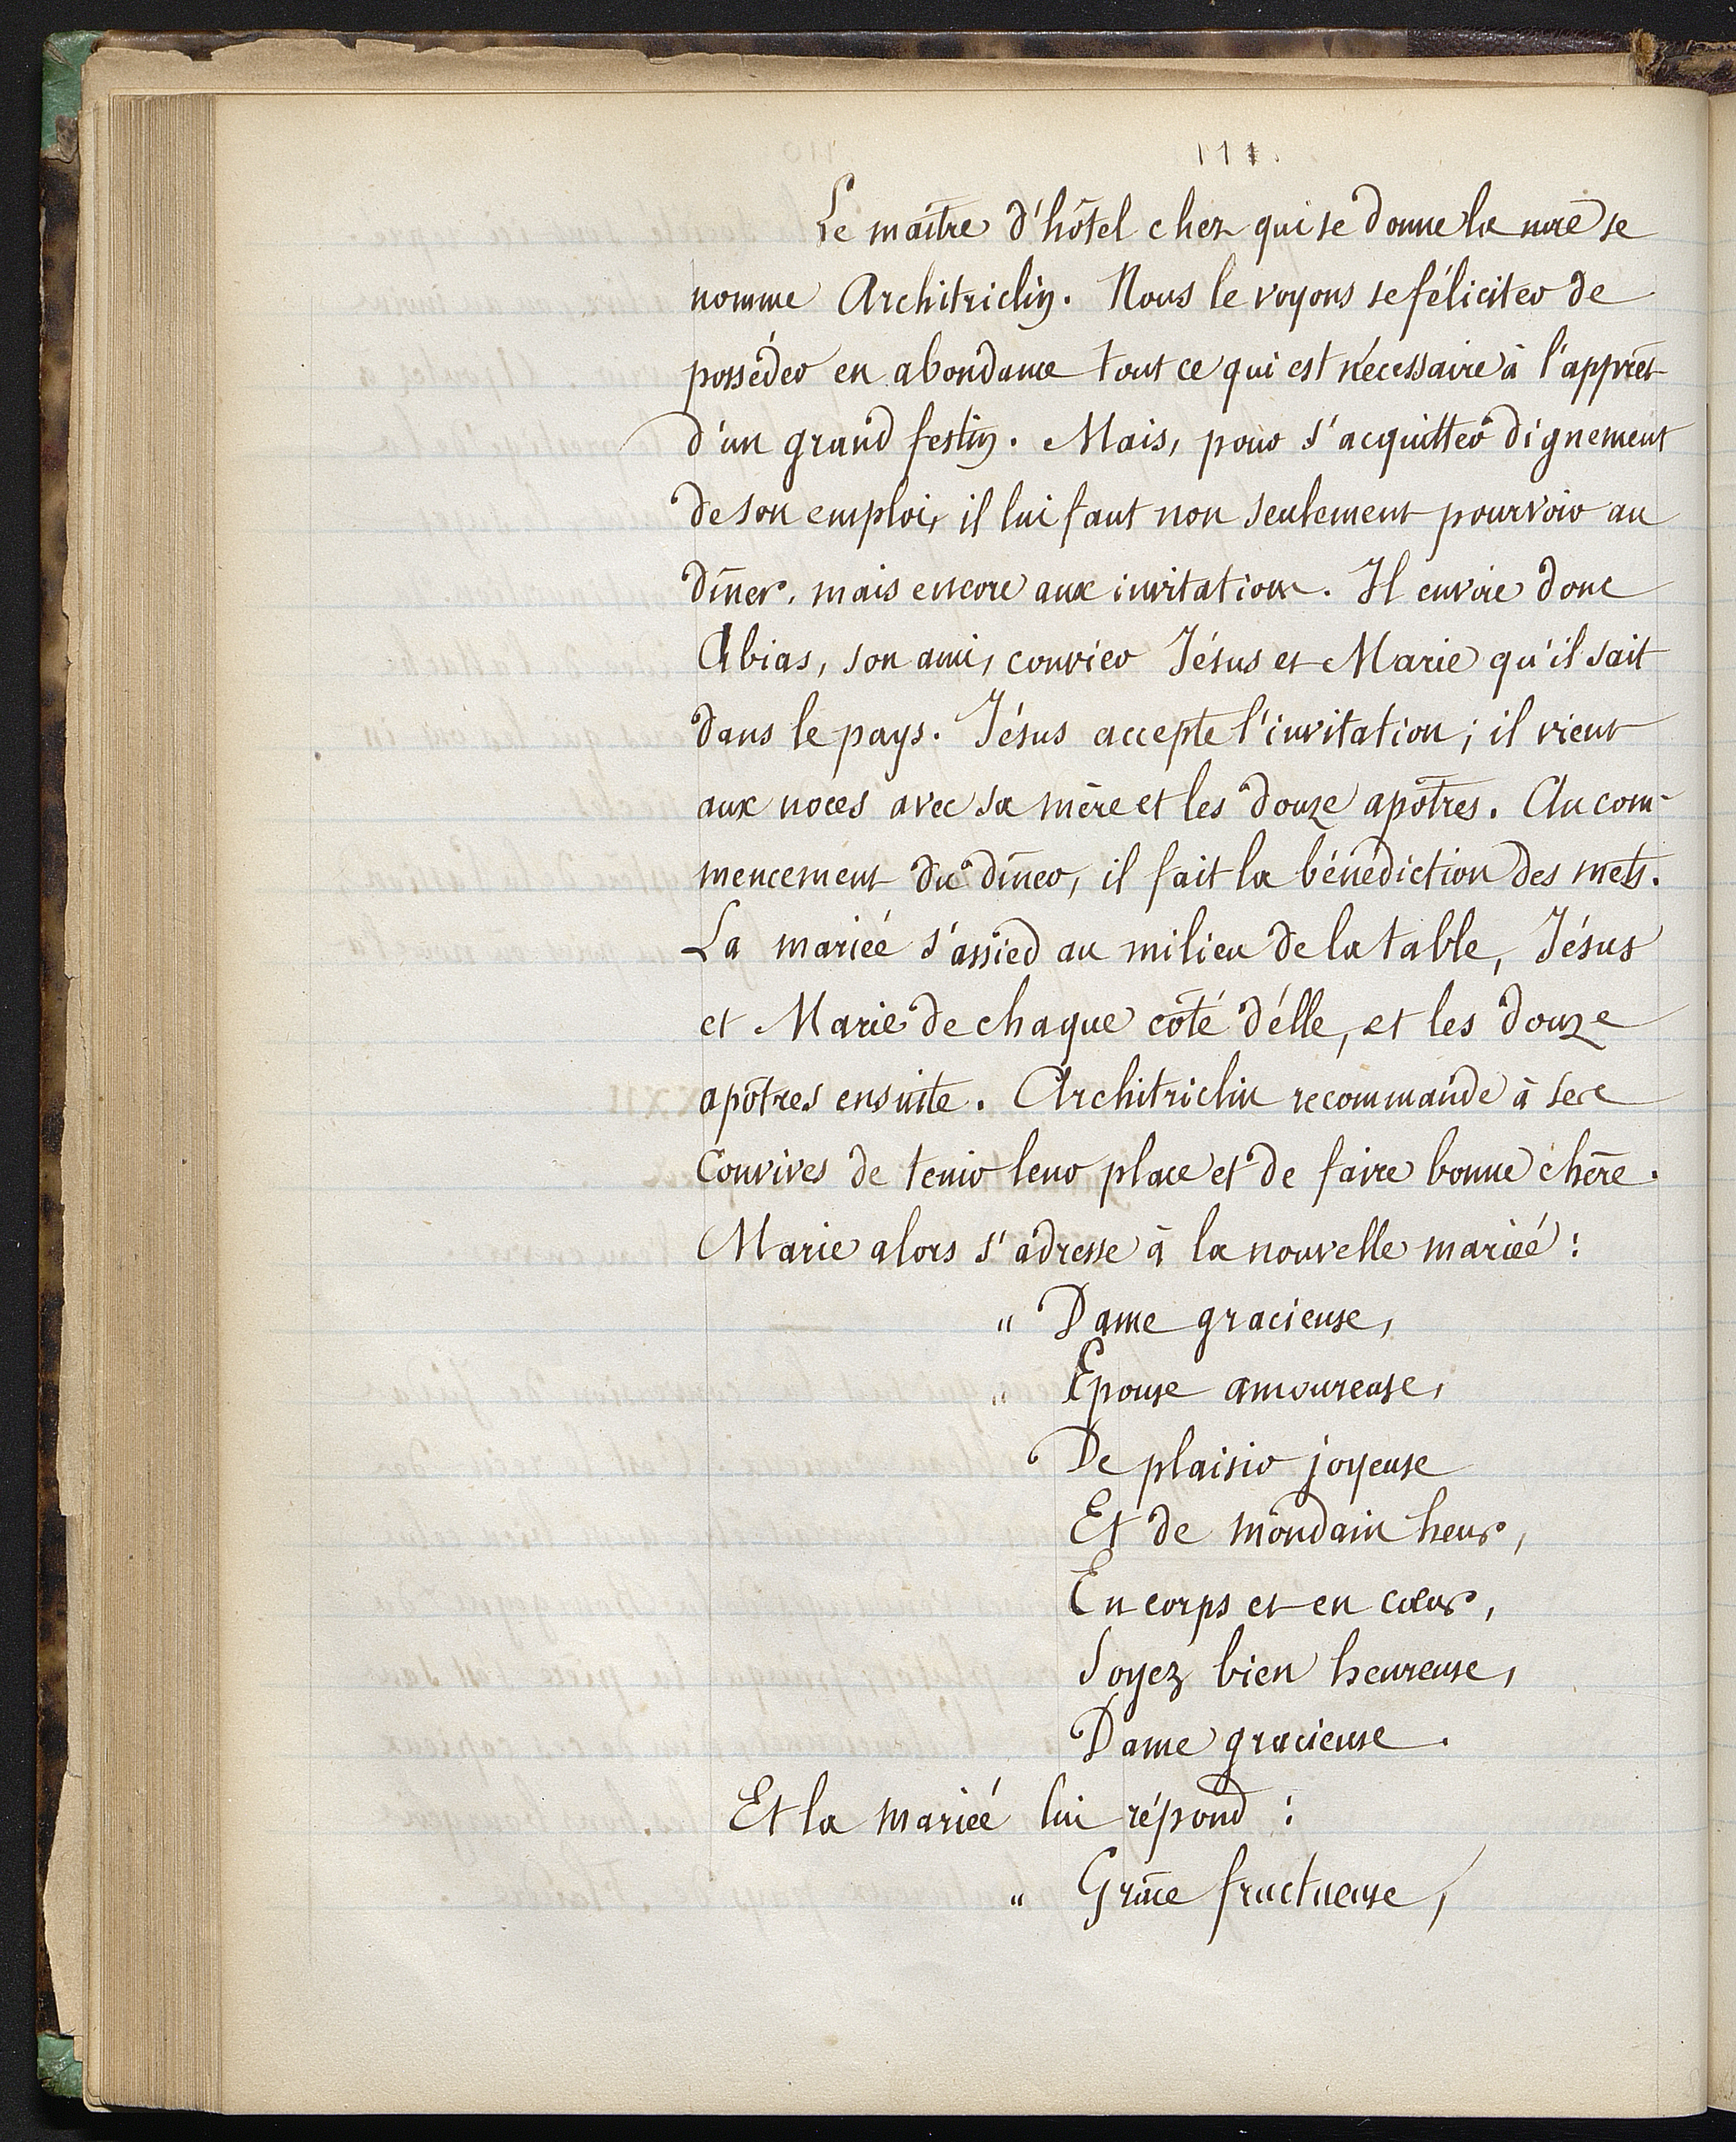 111.
Le maître d'hôtel chez qui se donne la noce se
nomme Architriclin. Nous le voyons se féliciter de
posséder en abondance tout ce qui est nécessaire à l'apprêt
d'un grand festin. Mais, pour s'acquitter dignement
de son emploi, il lui faut non seulement pourvoir au
dîner, mais encore aux invitations. Il envoie donc
Abias, son ami, convier Jésus et Marie qu'il sait
dans le pays. Jésus accepte l'invitation; il vient
aux noces avec sa mère et les douze apôtres. Au com-
mencement du dîner, il fait la bénédiction des mets.
La mariée s'assied au milieu de la table, Jésus
et Marie de chaque côté d'elle, et les douze
apôtres ensuite. Architriclin recommande à ses
convives de tenir leur place et de faire bonne chère.
Marie alors s'adresse à la nouvelle mariée :
" Dame gracieuse,
" Epouse amoureuse,
De plaisir joyeuse
Et de mondain heur,
En corps et en cœur,
Soyez bien heureuse,
Dame gracieuse.
Et la mariée lui répond :
" Grâce fructueuse,